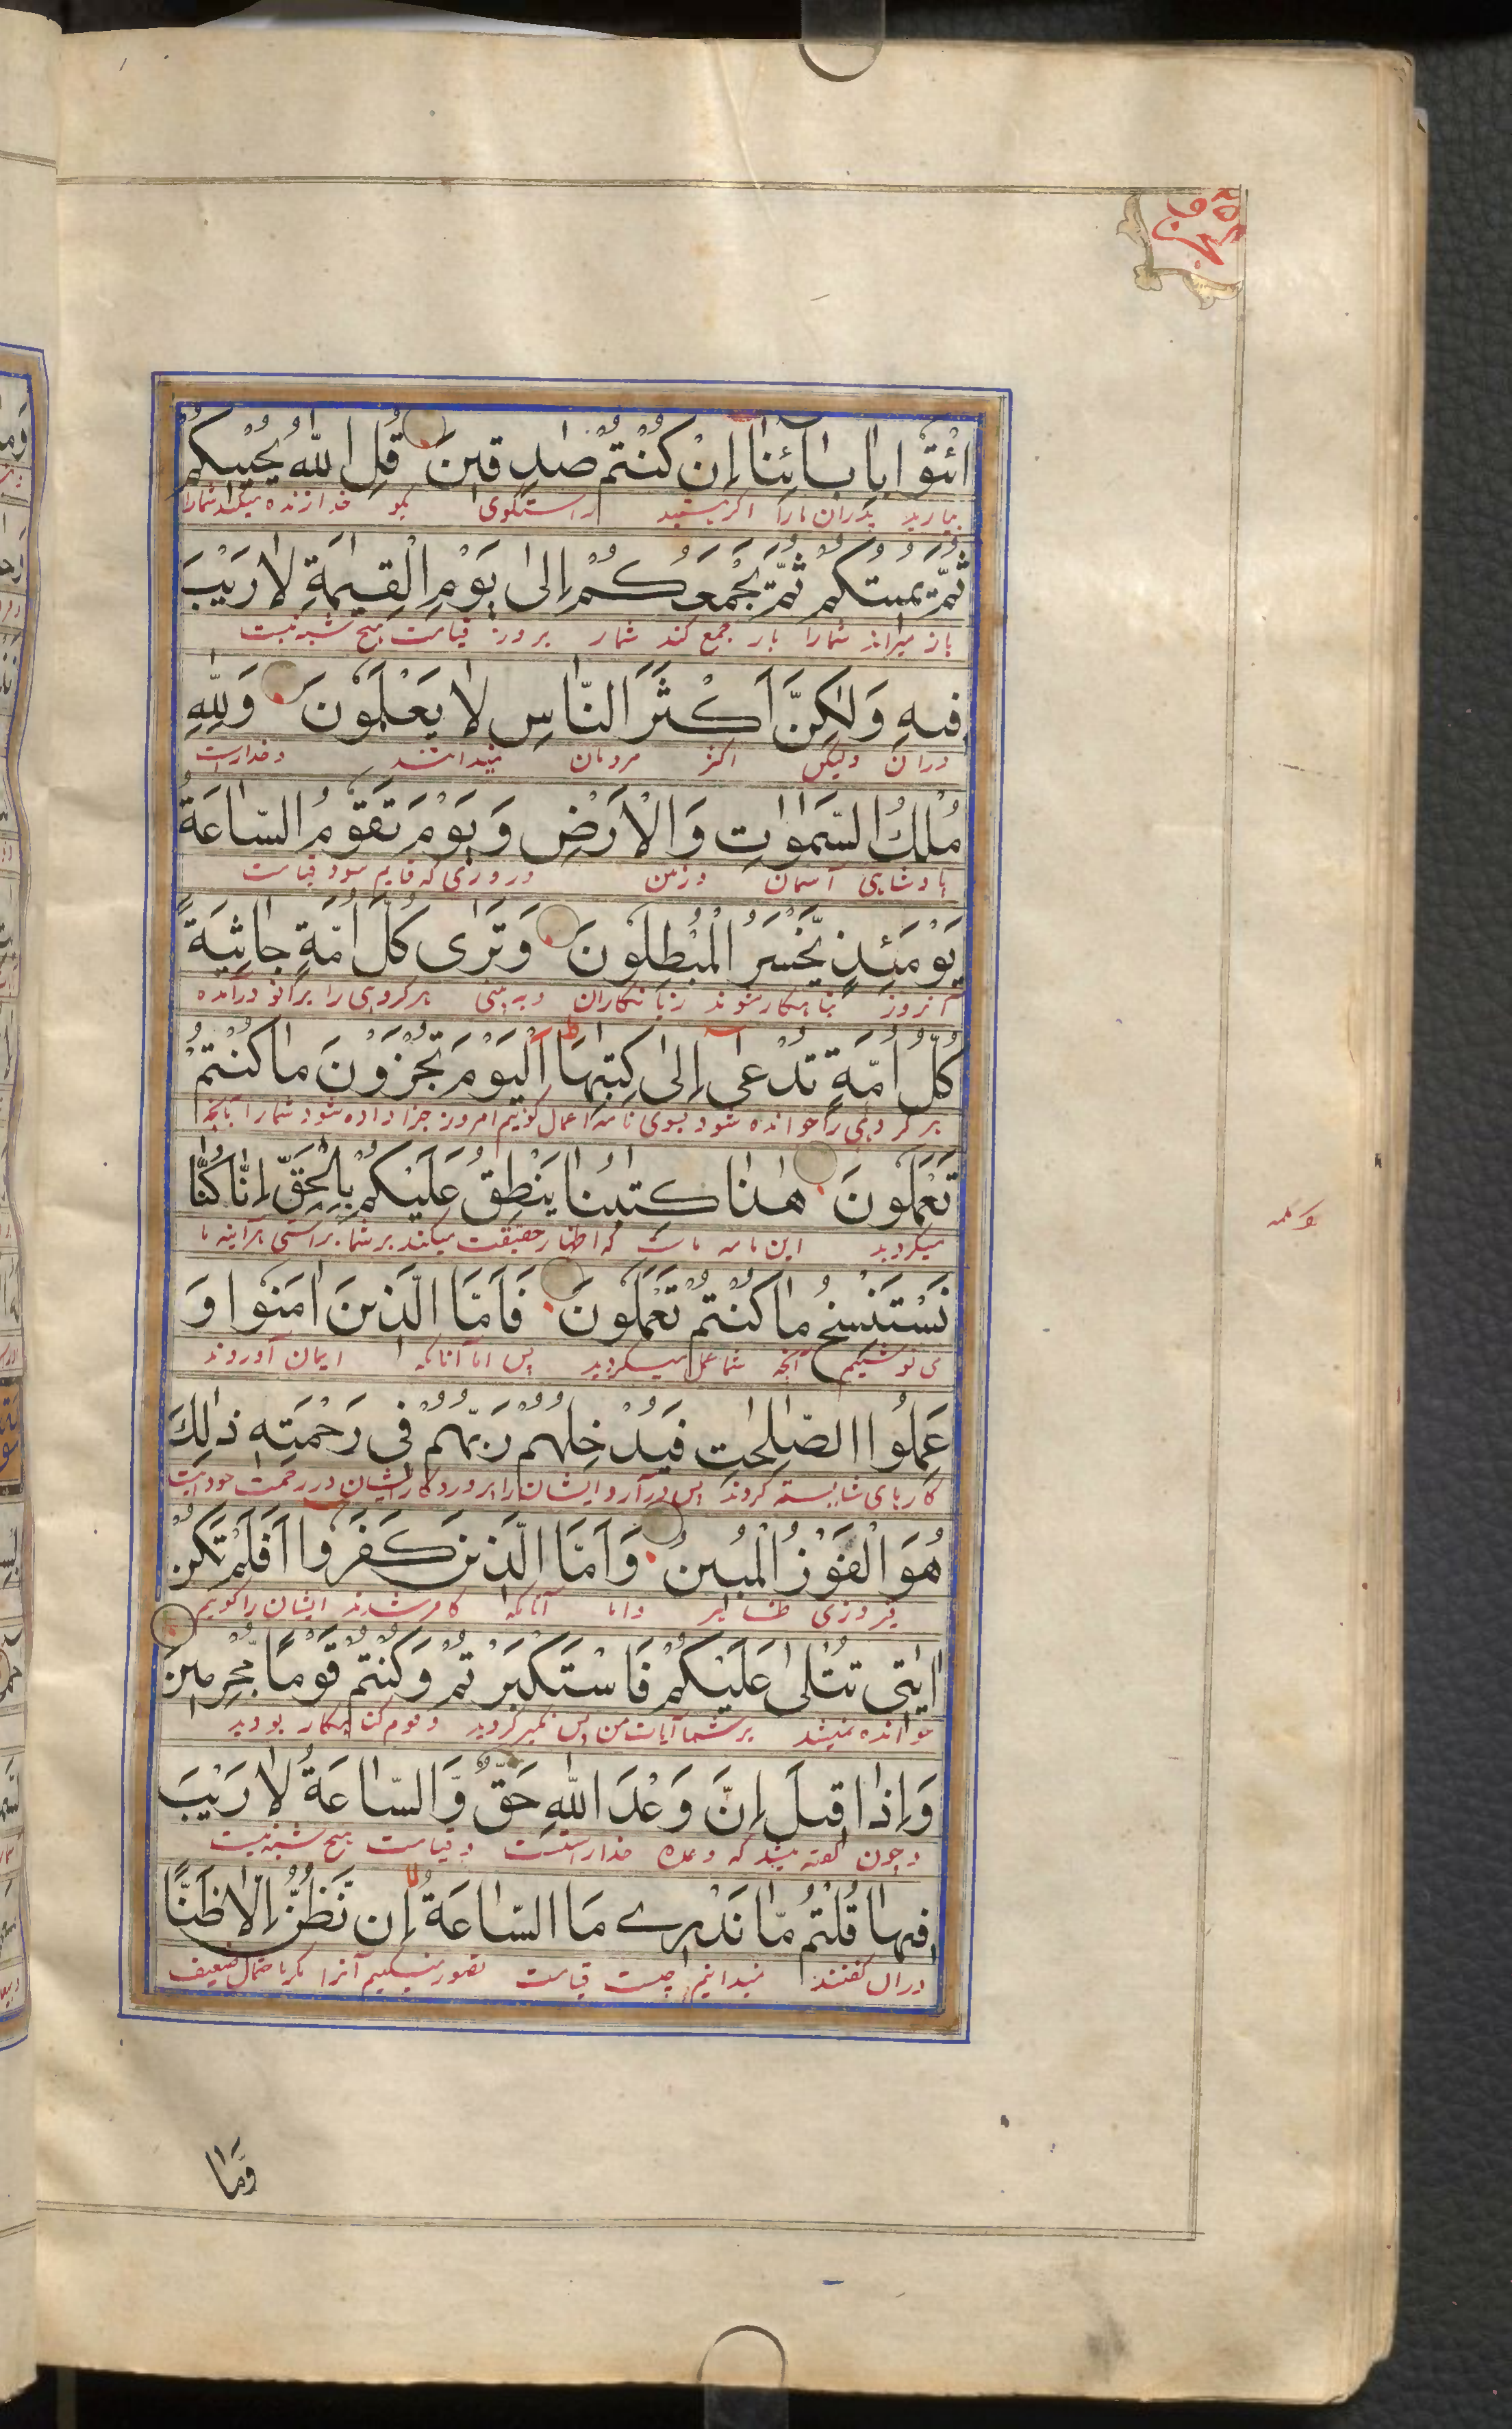 ائْتُوْا بِاٰبَائِنَا اِنْ كُنْتُمْ صٰدِقِیْنَ قُلِ اللّٰهُ یُحْیِیْكُمْ
بیارید پدران مارا اگر هستید راستگوی بگو خدا زنده میکند شمارا
ثُمَّ یُمِیْتُكُمْ ثُمَّ یَجْمَعُكُمْ اِلٰی یَوْمِ الْقِیٰمَةِ لَا رَیْبَ
باز میراند شمارا باز جمع کند شمار بروز قیامت هیچ شبه نیست
فِیْهِ وَلٰكِنَّ اَكْثَرَ النَّاسِ لَا یَعْلَمُوْنَ وَلِلّٰهِ
دران ولیکن اکثر مردمان نمیدانند وخداراست
مُلْكُ السَّمٰوٰتِ وَالْاَرْضِ وَیَوْمَ تَقُوْمُ السَّاعَةُ
پادشاهی آسمان وزمین وروزی که قایم شود قیامت
یَوْمَئِذٍ یَّخْسَرُ الْمُبْطِلُوْنَ وَتَرٰی كُلَّ اُمَّةٍ جَاثِیَةً
آنروز زیانکاران وبه بینی هرگروهی را برانو درآمده
كُلُّ اُمَّةٍ تُدْعٰی اِلٰی كِتٰبِهَا ط اَلْیَوْمَ تُجْزَوْنَ مَا كُنْتُمْ
هر گروهی را خوانده شود بسوی نامه اعمال گوییم امروز جزا داده شود شمارا بآنچه
تَعْمَلُوْنَ هٰذَا كِتٰبُنَا یَنْطِقُ عَلَیْكُمْ بِالْحَقِّ اِنَّا كُنَّا
میکردید این نامه ماست که اظهار حقیقت میکند بر شما براستی هرآینه ما
نَسْتَنْسِخُ مَا كُنْتُمْ تَعْمَلُوْنَ فَاَمَّا الَّذِیْنَ اٰمَنُوْا وَ
می نوشتیم آنچه شما عمل میکردید پس اما آنانکه ایمان آوردند
عَمِلُوا الصّٰلِحٰتِ فَیُدْخِلُهُمْ رَبُّهُمْ فِیْ رَحْمَتِهٖ ذٰلِكَ
کارهای شایسته کردند پس درآرد ایشان را پروردگار ایشان در رحمت خود
هُوَ الْفَوْزُ الْمُبِیْنُ وَاَمَّا الَّذِیْنَ كَفَرُوْا اَفَلَمْ تَكُنْ
فیروزی ظاهر واما آنانکه کافر شدند ایشان را گوییم
اٰیٰتِیْ تُتْلٰی عَلَیْكُمْ فَاسْتَكْبَرْتُمْ وَكُنْتُمْ قَوْمًا مُّجْرِمِیْنَ
خوانده نمیشد بر شما آیات من پس تکبر کردید و قوم گناهکار بودید
وَاِذَا قِیْلَ اِنَّ وَعْدَ اللّٰهِ حَقٌّ وَّالسَّاعَةُ لَا رَیْبَ
وچون گفته میشد که وعده خدا راست وقیامت هیچ شبه نیست
فِیْهَا قُلْتُمْ مَّا نَدْرِیْ مَا السَّاعَةُ لا اِنْ نَّظُنُّ اِلَّا ظَنًّا
دران گفتند نمیدانیم چیست قیامت تصور نمیکنیم آنرا مگر احتمال ضعیف
وَّمَا